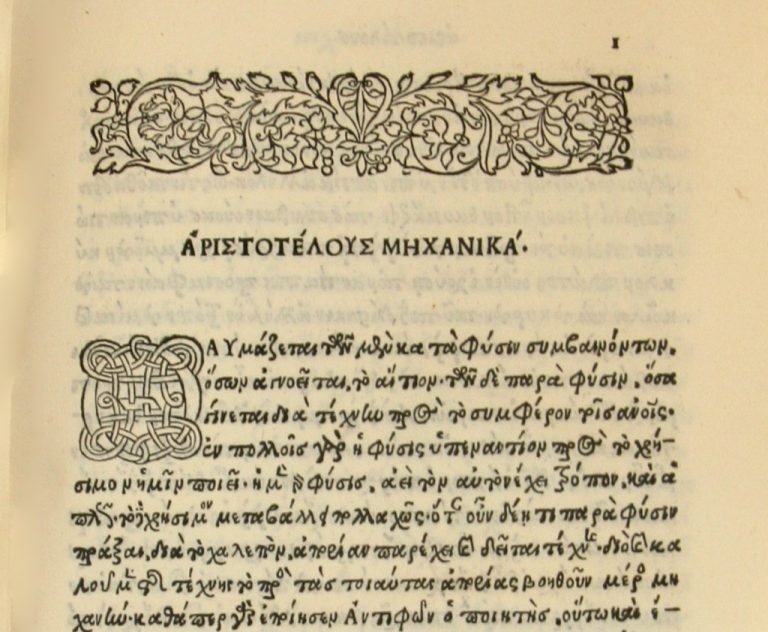 1
ἈΡΙΣΤΟΤΕΛΟΥΣ ΜΗΧΑΝΙΚΆ.
ΘΑΥμάζεται τῶν μὲν κατὰ φύσιν συμβαινόντων,
ὅσων ἀγνοεῖται, τὸ αἴτιον· τῶν δὲ παρὰ φύσιν, ὅσα
γίνεται διὰ τέχνην πρὸς τὸ συμφέρον τοῖς ἀνοῖς·
ἐν πολλοῖς γὰρ ἡ φύσις ὑπεναντίον πρὸς τὸ χρή-
σιμον ἡμῖν ποιεῖ· ἡ μὲν γὰρ φύσις, ἀεὶ τὸν αὐτὸν ἔχει τρόπον, καὶ ἁ
πλῶς· τὸ δὲ χρήσιμον μεταβάλλει πολλαχῶς· ὅταν οὖν δέῃ τι παρὰ φύσιν
πρᾶξαι, διὰ τὸ χαλεπὸν, ἀπορίαν παρέχει καὶ δεῖται τέχνης· διὸ καὶ κα
λοῦμεν τῆς τέχνης τὸ πρὸς τὰς τοιαύτας ἀπορίας βοηθοῦν μέρος μη
χανήν· καθάπερ γὰρ ἐποίησεν Ἀντιφῶν ὁ ποιητὴς, οὕτω καὶ ἔ-